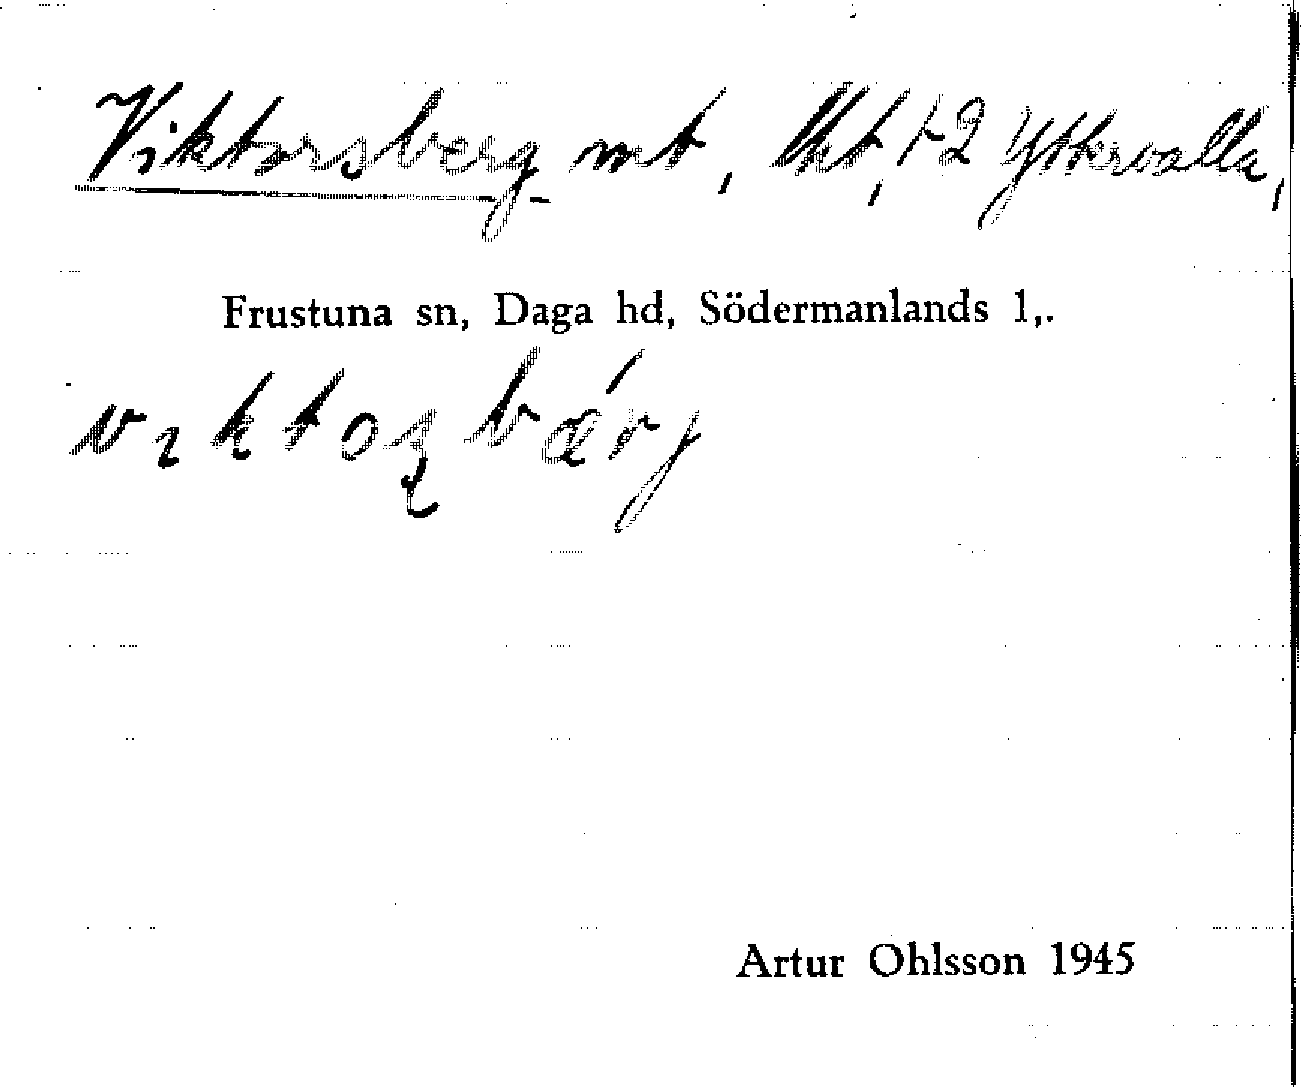 Viktorsberg mt, lht, 1-2 Yttervalla,
Frustuna sn, Daga hd, Södermanlands l,.
Artur Ohlsson 1945